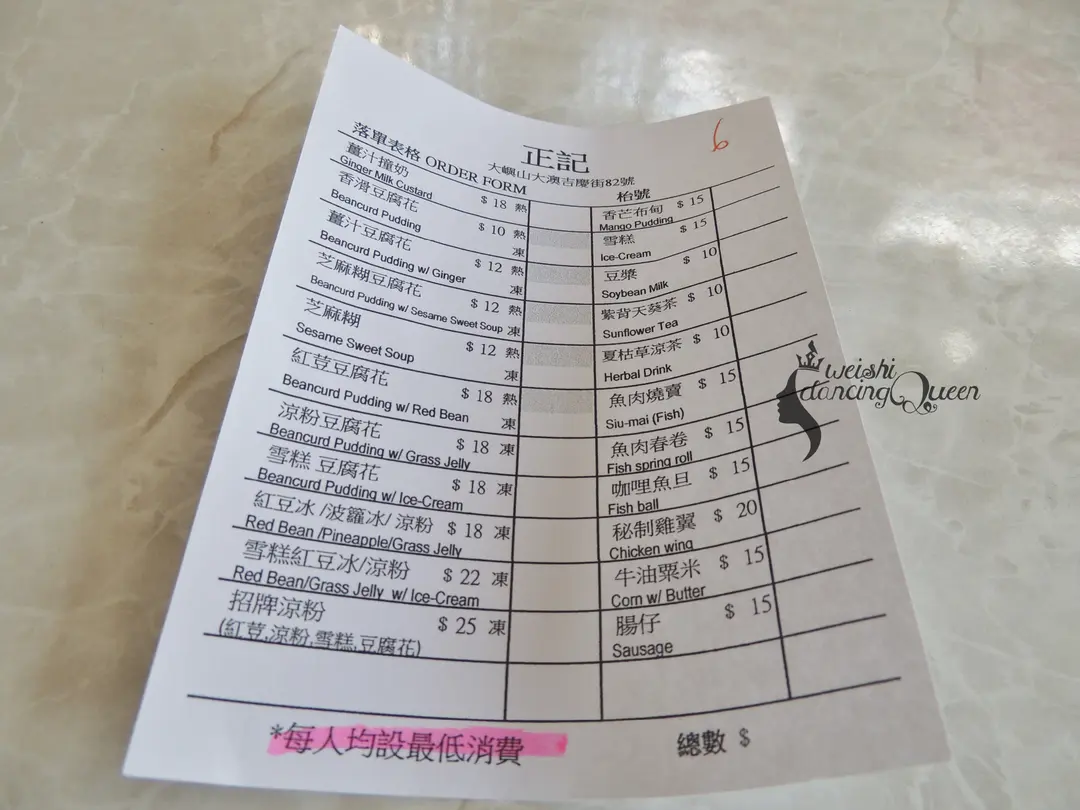 正記
6
大嶼山大澳吉慶街82號
落單表格 ORDER FORM
枱號
薑汁撞奶 $ 18 熱
Ginger Milk Custard
香滑豆腐花 $ 10 熱
Beancurd Pudding 凍
薑汁豆腐花 $ 12 熱
Beancurd Pudding w/ Ginger 凍
芝麻糊豆腐花 $ 12 熱
Beancurd Pudding w/ Sesame Sweet Soup 凍
芝麻糊 $ 12 熱
Sesame Sweet Soup 凍
紅荳豆腐花 $ 18 熱
Beancurd Pudding w/ Red Bean 凍
涼粉豆腐花 $ 18 凍
Beancurd Pudding w/ Grass Jelly
雪糕 豆腐花 $ 18 凍
Beancurd Pudding w/ Ice-Cream
紅豆冰 /波蘿冰/ 涼粉 $ 18 凍
Red Bean /Pineapple/Grass Jelly
雪糕紅豆冰/涼粉 $ 22 凍
Red Bean/Grass Jelly w/ Ice-Cream
招牌涼粉 $ 25 凍
(紅荳,涼粉,雪糕,豆腐花)
香芒布甸 $ 15
Mango Pudding
雪糕 $ 15
Ice-Cream
豆漿 $ 10
Soybean Milk
紫背天葵茶 $ 10
Sunflower Tea
夏枯草涼茶 $ 10
Herbal Drink
魚肉燒賣 $ 15
Siu-mai (Fish)
魚肉春卷 $ 15
Fish spring roll
咖哩魚旦 $ 15
Fish ball
秘制雞翼 $ 20
Chicken wing
牛油粟米 $ 15
Corn w/ Butter
腸仔 $ 15
Sausage
*每人均設最低消費
總數 $
weishi
dancingQueen